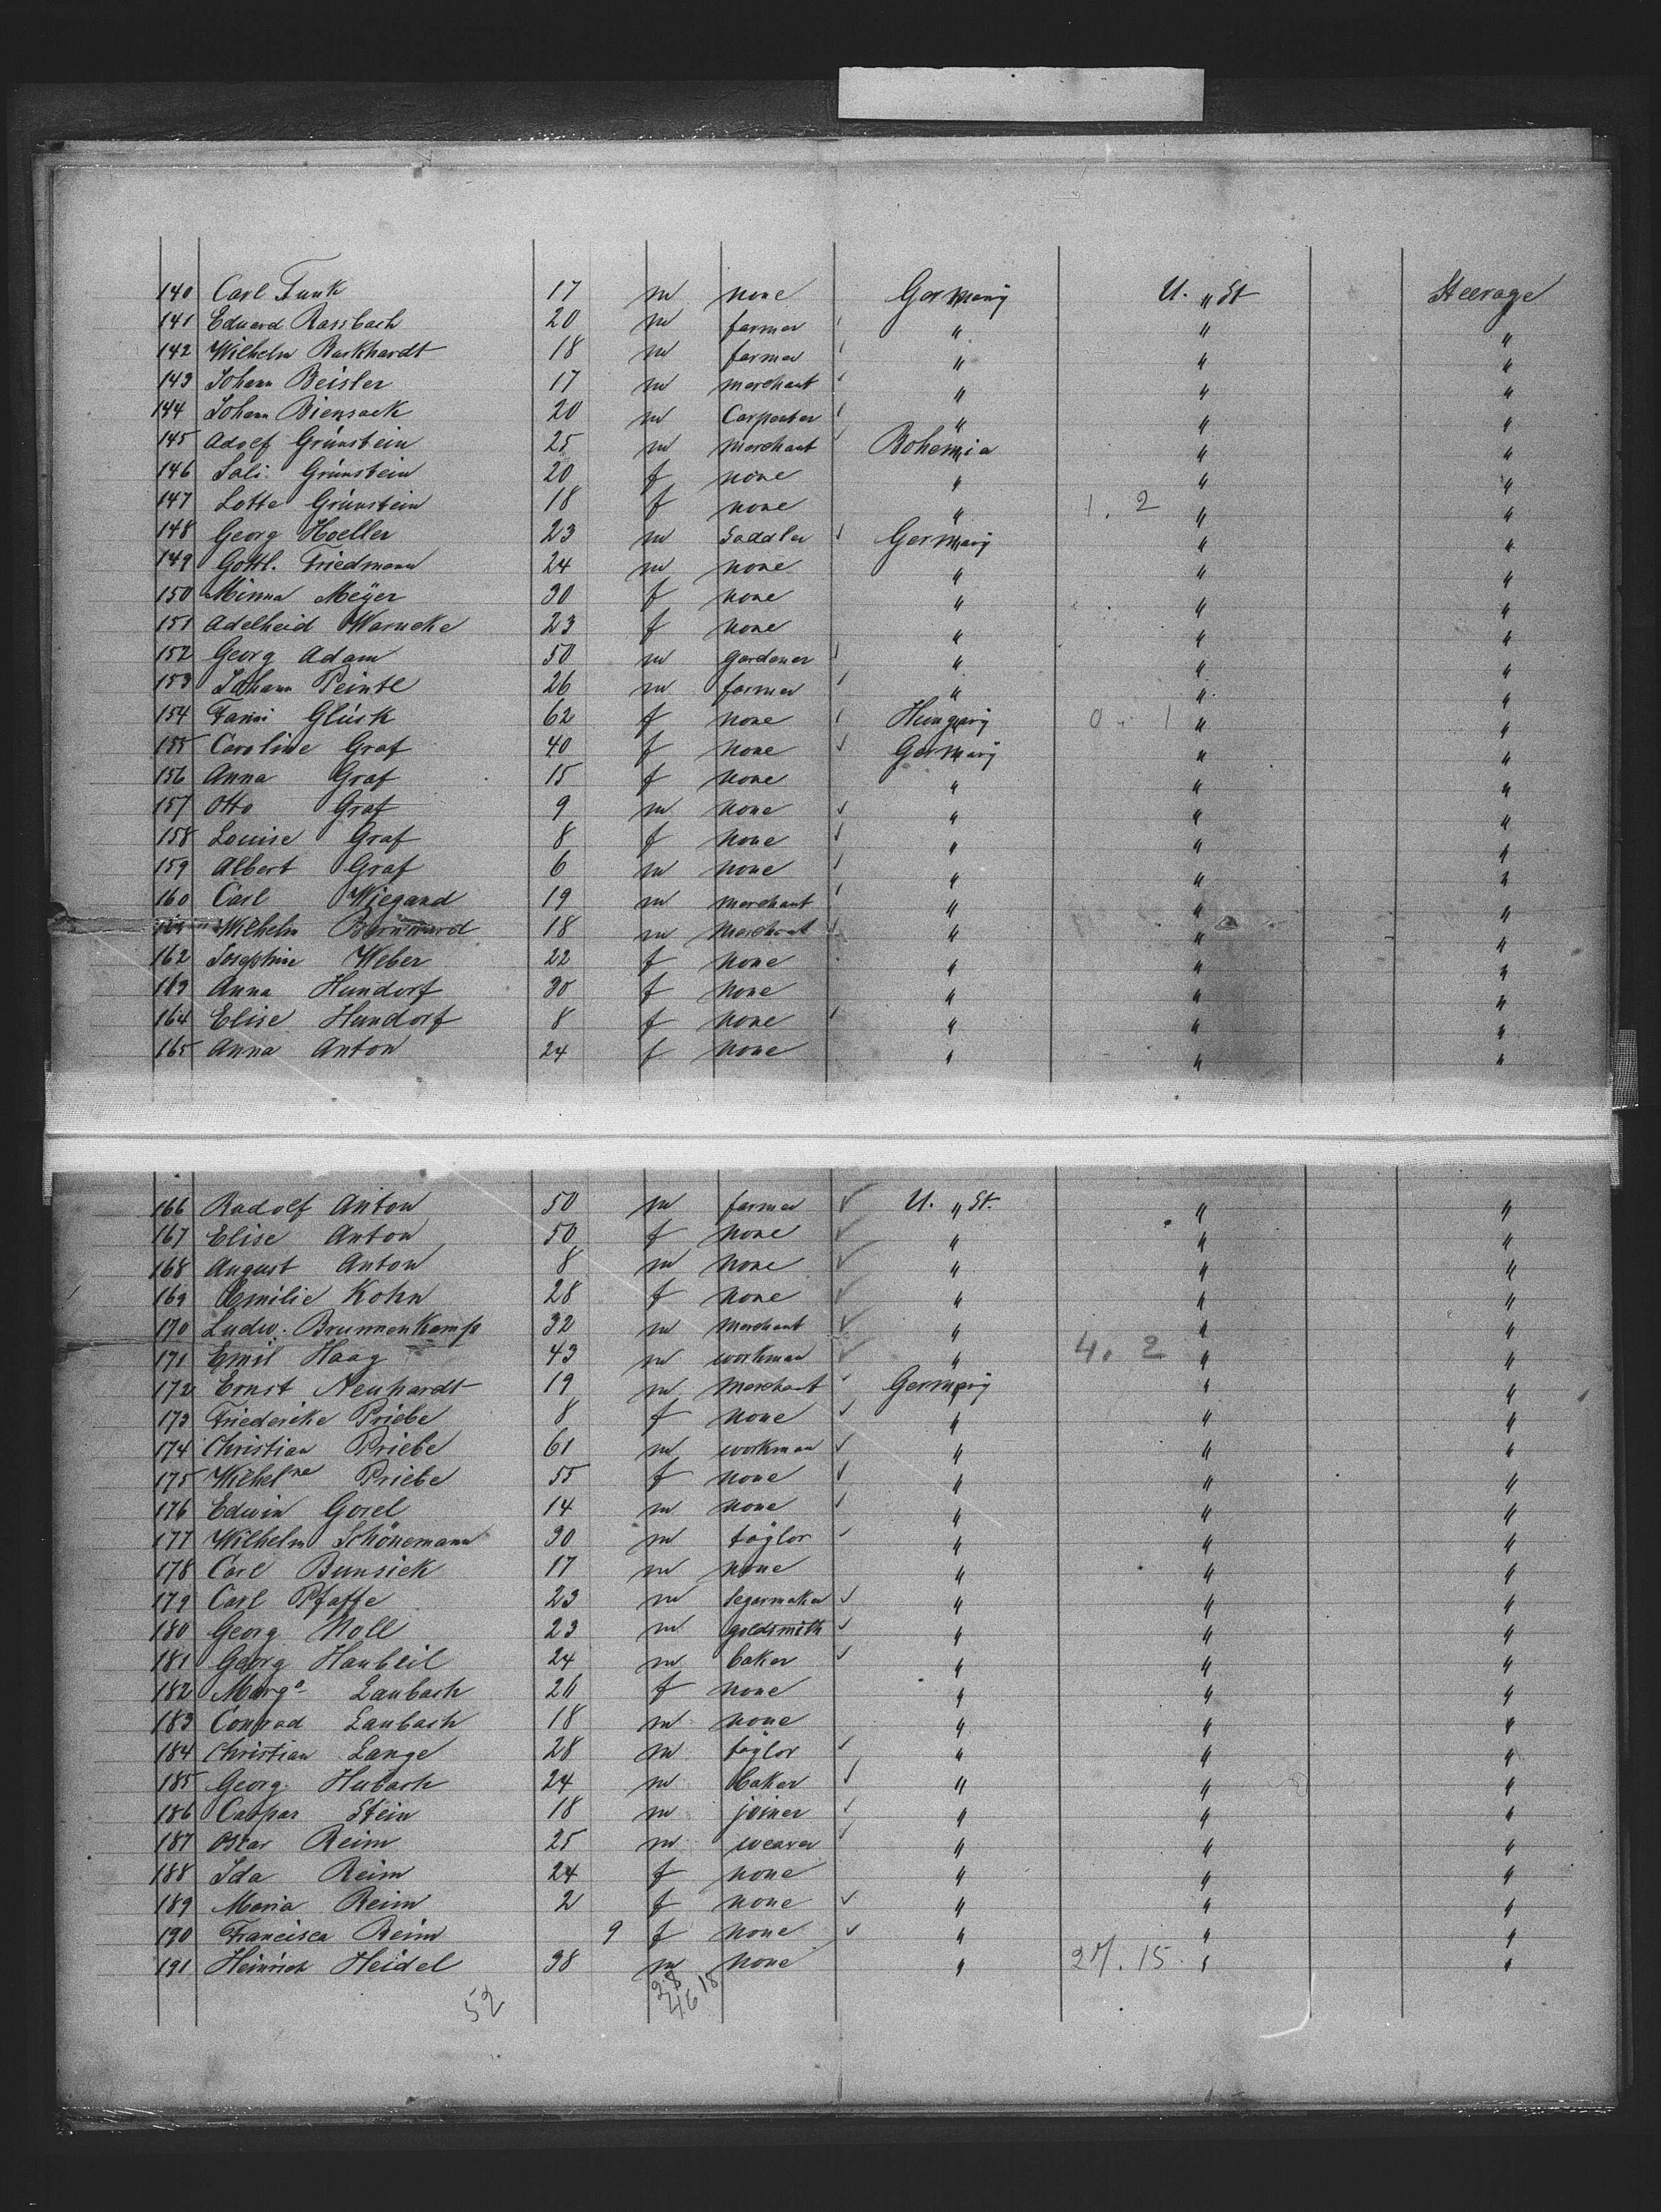 140 Carl Funk 17 m none Germany U. " St Steerage
141 Eduard Rassbach 20 m farmer " " "
142 Wilhelm Burkhardt 18 m farmer " " "
143 Johann Beisler 17 m merchant " " "
144 Johann Biensack 20 m Carpenter " " "
145 Adolf Grünstein 25 m merchant Bohemia " "
146 Sali Grünstein 20 f none " " "
147 Lotte Grünstein 18 f none " 1. 2 " "
148 Georg Hoeller 23 m Saddler Germany " "
149 Gottl. Friedmann 24 m none " " "
150 Minna Meÿer 30 f none " " "
151 Adelheid Warneke 23 f none " " "
152 Georg Adam 50 m gardener " " "
153 Johann Peintl 26 m farmer " " "
154 Fanni Glück 62 f none Hungary 0. 1 " "
155 Caroline Graf 40 f none Germany " "
156 Anna Graf 15 f none " " "
157 Otto Graf 9 m none " " "
158 Louise Graf 8 f none " " "
159 Albert Graf 6 m none " " "
160 Carl Wiegand 19 m merchant " " "
161 Wilhelm 18 m Merchant " " "
162 Josephine Weber 22 f none " " "
163 Anna Hundorf 30 f none " " "
164 Elise Hundorf 8 f none " " "
165 Anna Anton 24 f none " " "
166 Rudolf Anton 50 m farmer U. " St. " "
167 Elise Anton 50 f none " " "
168 August Anton 8 m none " " "
169 Emilie Kohn 28 f none " " "
170 Ludw. Brunnenkamp 32 m Merchant " " "
171 Emil Haag 43 m workman " 4. 2 " "
172 Ernst Neuhardt 19 m Merchant Germany " "
173 Friedericke Priebe 8 f none " " "
174 Christian Priebe 61 m workman " " "
175 Wilhelne Priebe 55 f none " " "
176 Edwin Gorel 14 m none " " "
177 Wilhelm Schönemann 30 m taÿlor " " "
178 Carl Bunsick 17 m none " " "
179 Carl Pfaffe 23 m Segarmaker " " "
180 Georg Noll 23 m goldsmith " " "
181 Georg Haubeil 24 m baker " " "
182 Marga Laubach 26 f none " " "
183 Conrad Laubach 18 m none " " "
184 Christian Lange 28 m taÿlor " " "
185 Georg Hubach 24 m baker " " "
186 Caspar Stein 18 m joiner " " "
187 Oscar Reim 25 m weaver " " "
188 Ida Reim 24 f none " " "
189 Maria Reim 2 f none " " "
190 Francisca Reim 9 f none " " "
191 Heinrich Heidel 38 m none " 27. 15. " "
52